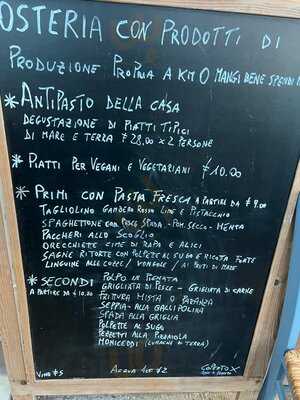 OSTERIA CON PRODOTTI DI
PRODUZIONE PROPRIA A KM 0 MANGI BENE SPENDI
* ANTIPASTO DELLA CASA
DEGUSTAZIONE DI PIATTI TIPICI
DI MARE E TERRA € 28,00 x 2 PERSONE
* PIATTI PER VEGANI E VEGETARIANI € 10.00
* PRIMI CON PASTA FRESCA A PARTIRE DA € 9.00
TAGLIOLINO GAMBERO ROSSO LIME E PISTACCHIO
SPAGHETTONE CON PESCE SPADA - POM. SECCO - MENTA
PACCHERI ALLO SCOGLIO
ORECCHIETTE CIME DI RAPA E ALICI
SAGNE RITORTE CON POLPETTE AL SUGO E RICOTTA FORTE
LINGUINE ALLE COZZE / VONGOLE / AI FRUTTI DI MARE
* SECONDI POLPO IN PIGNATA
A PARTIRE DA € 10.00 GRIGLIATA DI PESCE - GRIGLIATA DI CARNE
FRITTURA MISTA O PARANZA
SEPPIA ALLA GALLIPOLINA
SPADA ALLA GRIGLIA
POLPETTE AL SUGO
PEZZETTI ALLA PIGNATA
MONICEDDI (LUMACHE DI TERRA)
VINO €5 ACQUA 1LT €2 COPERTO X